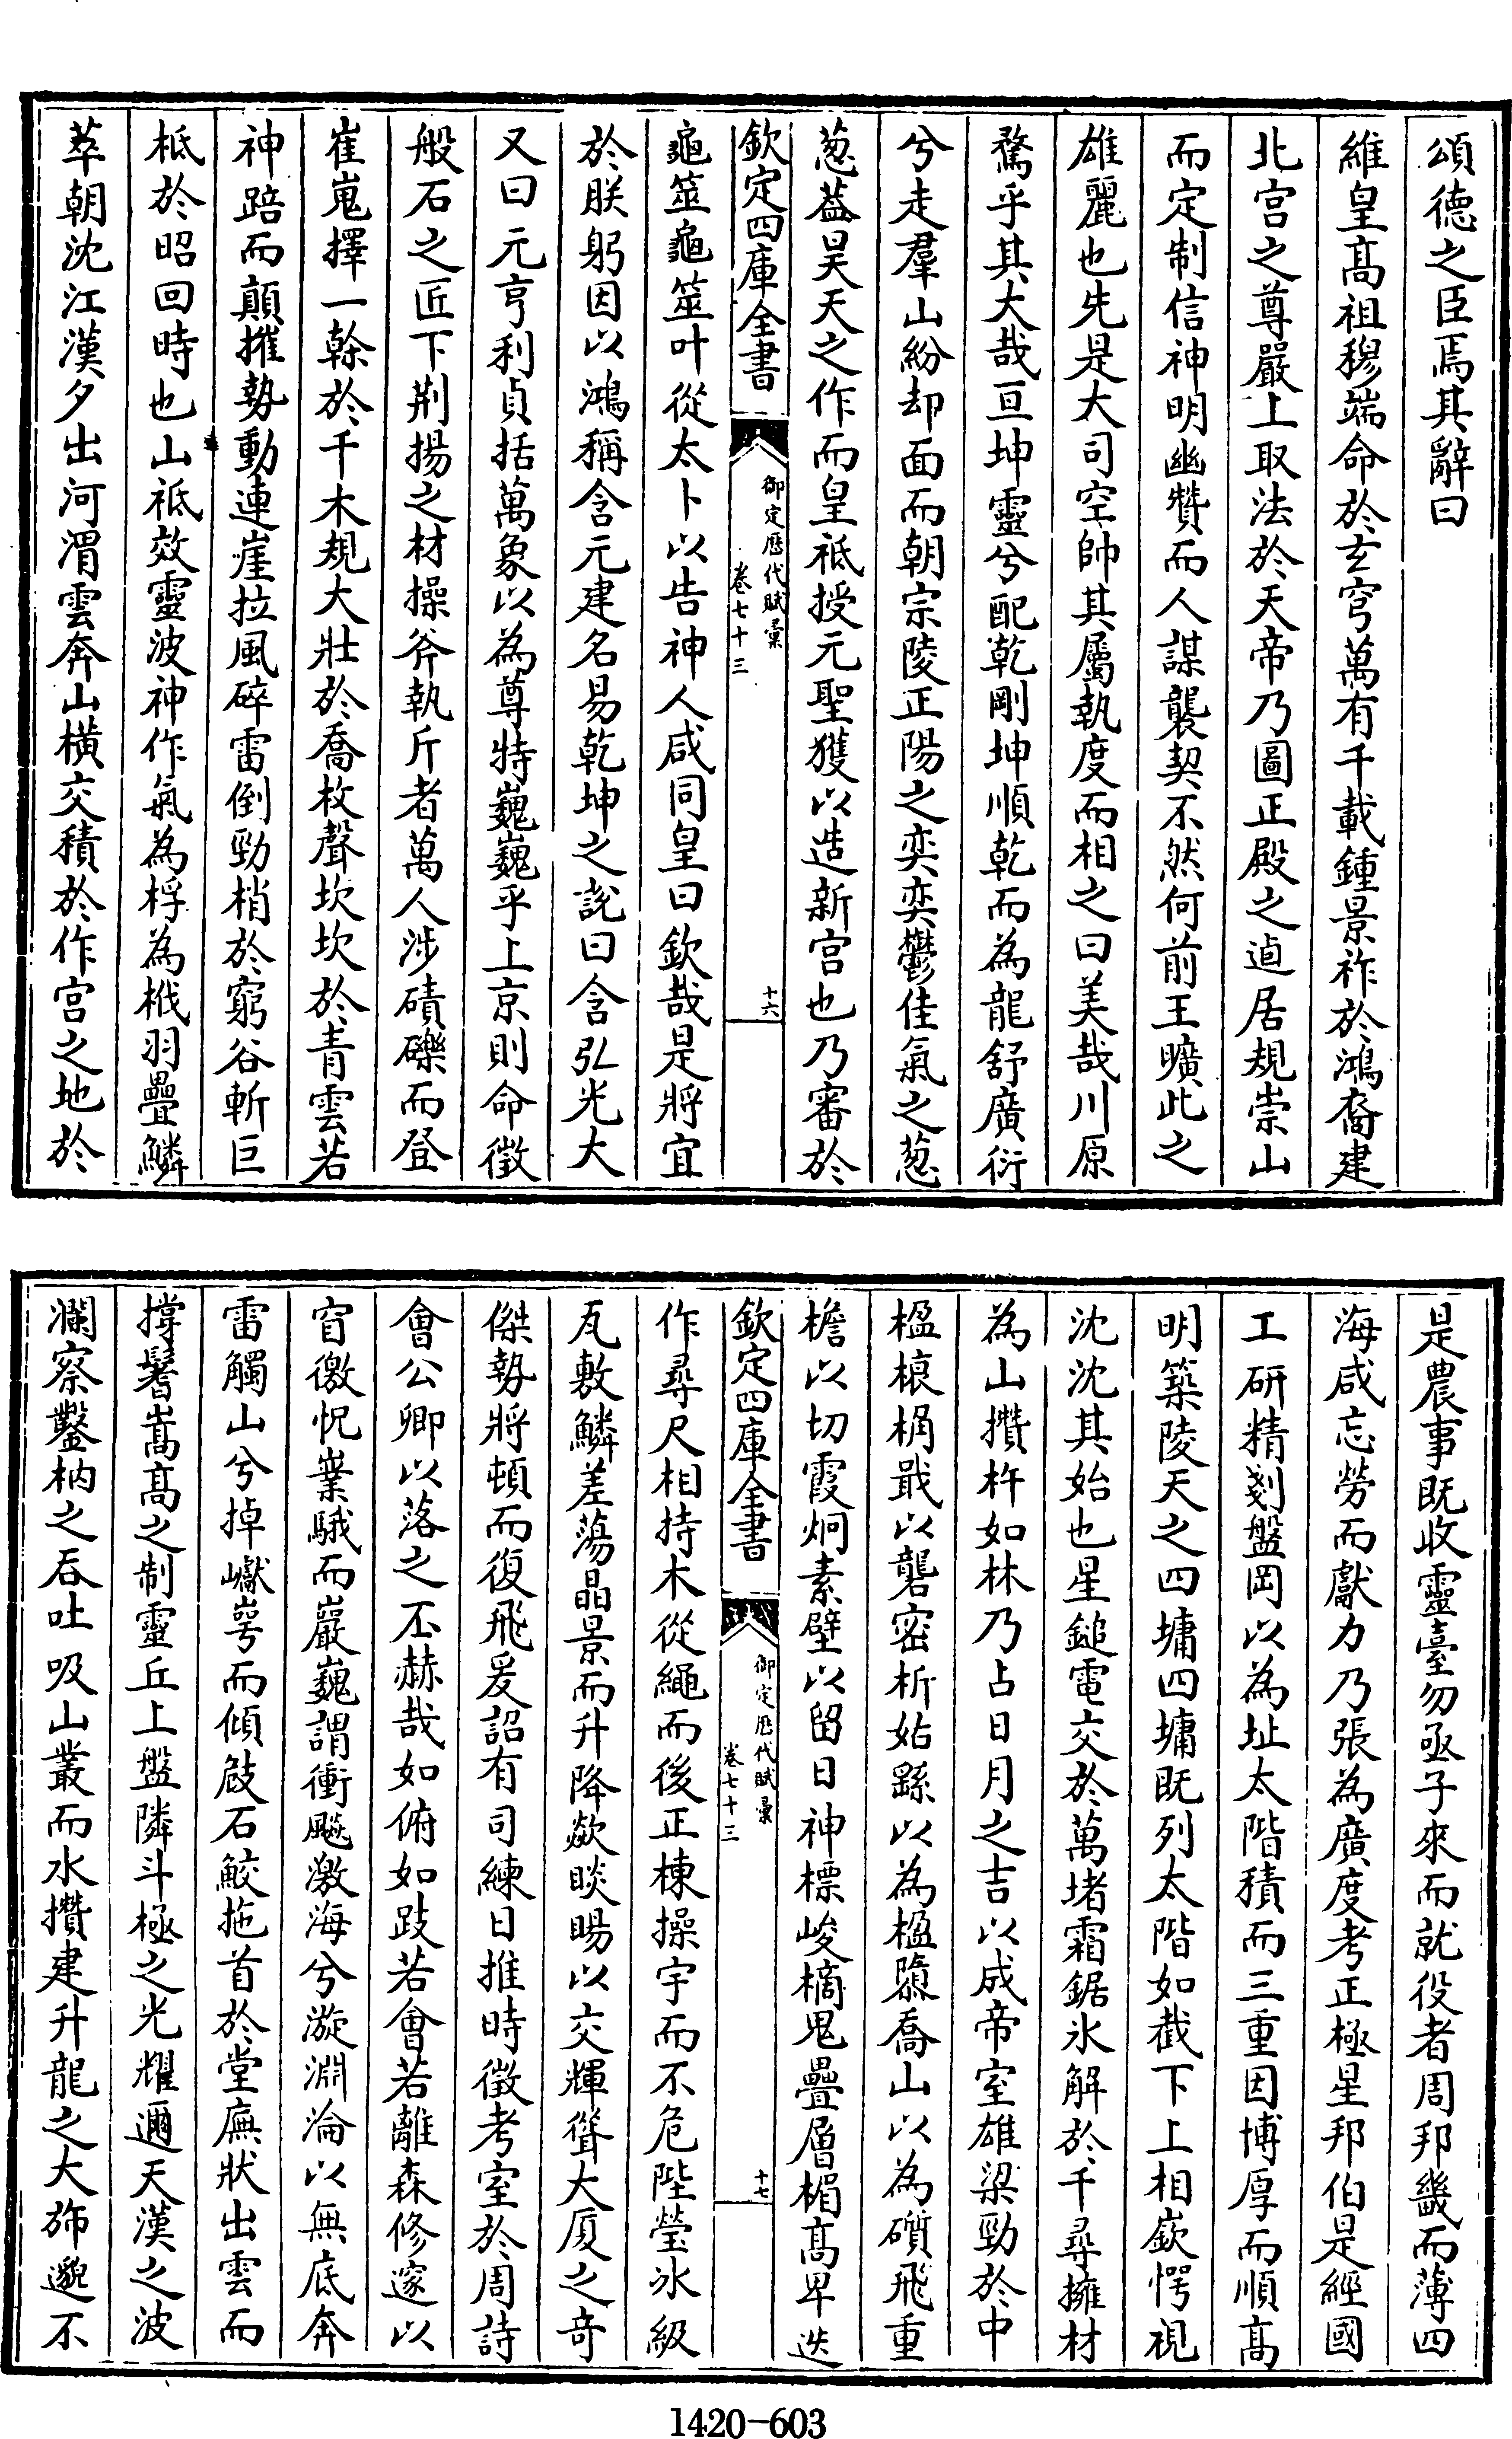 頌德之臣焉其辭曰
維皇高祖穆端命於玄穹萬有千載鍾景祚於鴻裔建
北宮之尊嚴上取法於天帝乃圖正殿之逌居規崇山
而定制信神明幽贊而人謀襲契不然何前王曠此之
雄麗也先是大司空帥其屬執度而相之曰美哉川原
騖乎其大哉亘坤靈兮配乾剛坤順乾而為龍舒廣衍
兮走羣山紛却面而朝宗陵正陽之奕奕鬱佳氣之葱
葱葢昊天之作而皇祇授元聖獲以造新宮也乃審於
欽定四庫全書
御定歷代賦彙
卷七十三
十六
龜筮龜筮叶從太卜以告神人咸同皇曰欽哉是將宜
於朕躬因以鴻稱含元建名易乾坤之說曰含弘光大
又曰元亨利貞括萬象以為尊特巍巍乎上京則命徵
般石之匠下荆揚之材操斧執斤者萬人涉磧礫而登
崔嵬擇一榦於千木規大壯於喬枚聲坎坎於青雲若
神踣而顛摧勢動連崖拉風碎雷倒勁梢於窮谷斬巨
柢於昭回時也山祇效靈波神作氣為桴為栰羽疊鱗
萃朝沈江漢夕出河渭雲奔山橫交積於作宮之地於
是農事既收靈臺勿亟子來而就役者周邦畿而薄四
海咸忘勞而獻力乃張為廣度考正極星邦伯是經國
工研精剗盤岡以為址太階積而三重因博厚而順高
明築陵天之四墉四墉既列太階如截下上相嶔愕視
沈沈其始也星鎚電交於萬堵霜鋸氷解於千尋擁材
為山攢杵如林乃占日月之吉以成帝室雄梁勁於中
楹桹桷戢以礱密析姑繇以為楹隳喬山以為礩飛重
檐以切霞炯素壁以留日神標峻樀鬼疊層楣高卑迭
欽定四庫全書
御定歷代賦彙
卷七十三
十七
作尋尺相持木從繩而後正棟操宇而不危陛瑩冰級
瓦敷鱗差蕩晶景而升降歘睒賜以交輝聳大厦之奇
傑勢將頓而復飛爰詔有司練日推時徵考室於周詩
會公卿以落之丕赫哉如俯如跂若會若離森修邃以
窅徼怳嶪䮸而巖巍謂衝飈激海兮漩淵淪以無底奔
雷觸山兮掉巘崿而傾㩻石鮫拖首於堂廡狀出雲而
撐鬐嵩高之制靈丘上盤隣斗極之光耀邇天漢之波
瀾察鑿枘之吞吐吸山叢而水攢建升龍之大斾邈不
1420-603